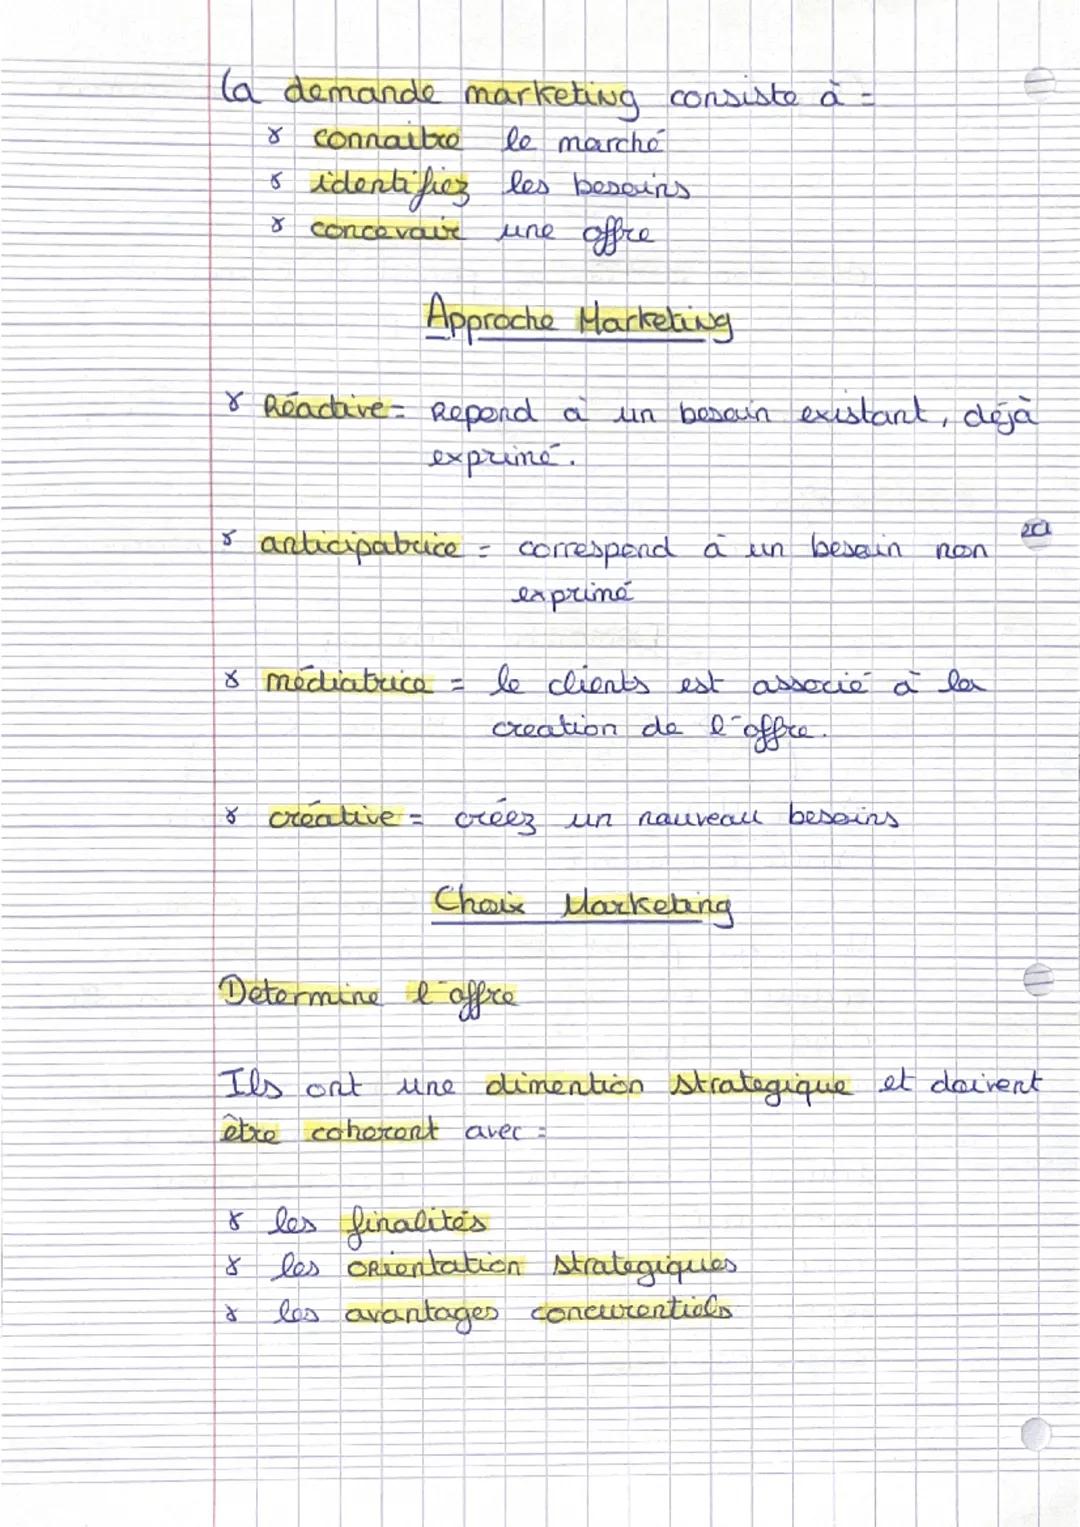 la demande marketing consiste à =
connaitre le marché
identifiez les besoins
concevoir une offre
Approche Marketing
Réactive = Repond à un besoin existant, déjà
exprimé.
anticipatrice = correspond à un besoin non
exprimé
médiatrice = le clients est associé à la
creation de l'offre.
créative = créez un nouveau besoins
Choix Marketing
Determine l'offre
Ils ont une dimention strategique et doivent
être coherent avec =
les finalités
les orientation strategiques
les avantages concurentiels